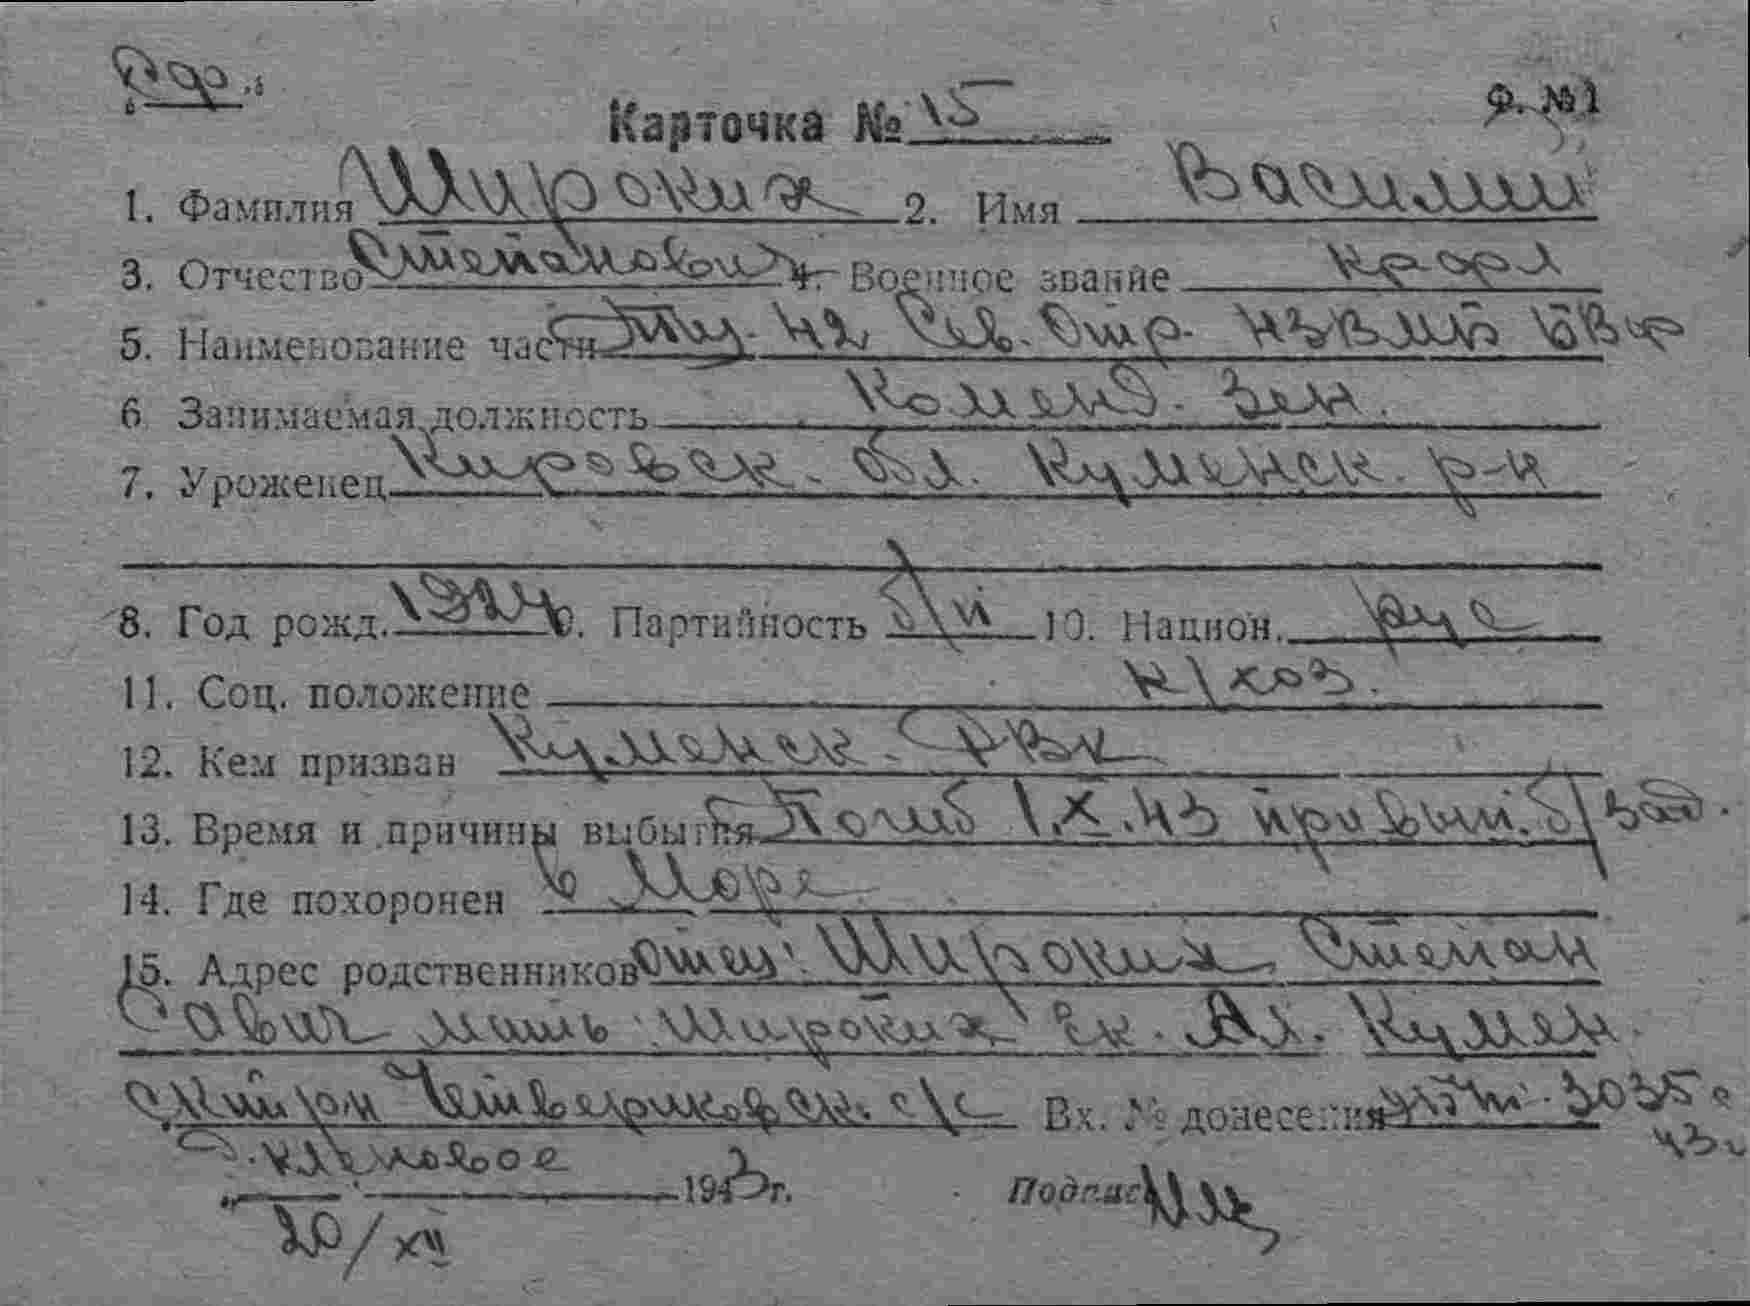 Ф. №1
Карточка № 15
1. Фамилия Широких 2. Имя Василий
3. Отчество Степанович 4. Военное звание крфл
5. Наименование части 42 Сев. Отр. БВФ
6 Занимаемая должность Коменд. Зен.
7. Уроженец Кировск. обл. Куменск. р-н
8. Год рожд. 1924 9. Партийность б/п 10. Национ. рус
11. Соц. положение к/хоз.
12. Кем призван Куменск. РВК
13. Время и причины выбытия Погиб 1.X.43 при вып. б/зад.
14. Где похоронен в Море
15. Адрес родственников отец: Широких Степан
Савич мать: Широких Ек. Ал. Кумен
ский р-н Четвериковск. с/с Вх. № донесения 3035 с
43 г
д. Кленовое
1943 г. Подпись
20/XII